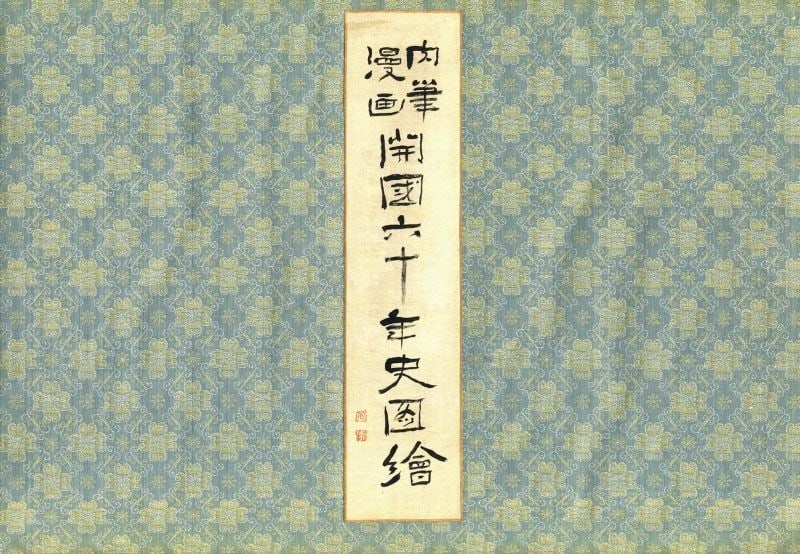 肉筆
漫画
開國六十年史図繪